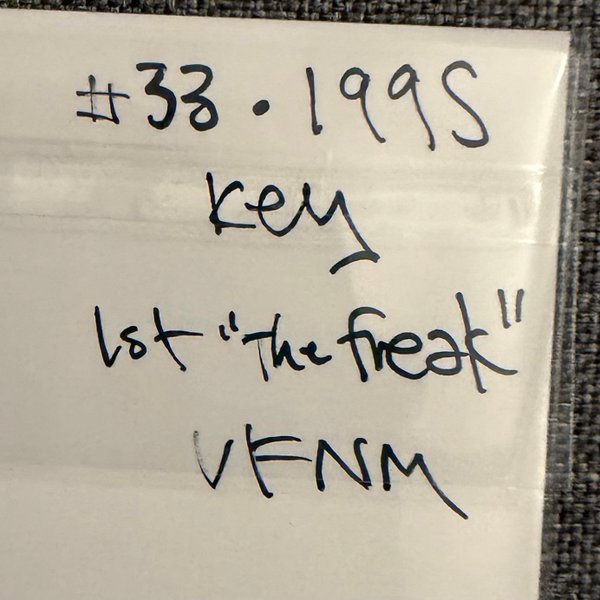 #33 • 1995
Key
1st "The freak"
VFNM